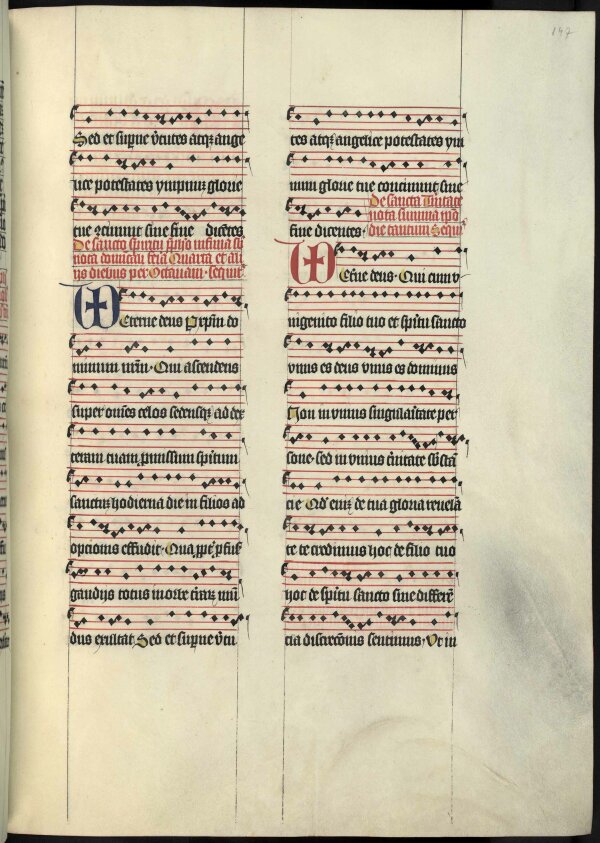 147
Sed et sup̱ne v̉tutes atqꝫ ange
lice potestates ympnum glorie
tue ꝯcinunt sine fine dicẽtes
De sancto spiritu
nota dominicȷ feria Quarta et ali
ijs diebus per Octauam. sequit̃
Eterne deus P̱ xp̃m do
minum nr̃m. Qui ascendens
super om̃es celos sedensqꝫ ad dex
teram tuam ꝓmissum spiritum
sanctum hodierna die in filios ad
optionis effudit. Qua ꝓpt̃ ꝓfusis
gaudijs totus in orbe terrarꝫ mũ
dus exultat Sed et sup̱ne v̉tu
tes atqꝫ angelice potestates ym
num glorie tue concinunt sine
De sancta Trinitate
fine dicentes.
nota summa
die tantum Sequit̃
Eterne deus. Qui cum v
nigenito filio tuo et sp̃itu sancto
vnus es deus vnus es dominus
Non in vnius singularitate per
sone. sed in vnius t̉nitate sb̃stã
cie Qd̃ enim de tua gloria reuelã
te te credimus hoc de filio tuo
hoc de sp̃itu sancto sine differẽ
tia discretionis sentimus. Vt in